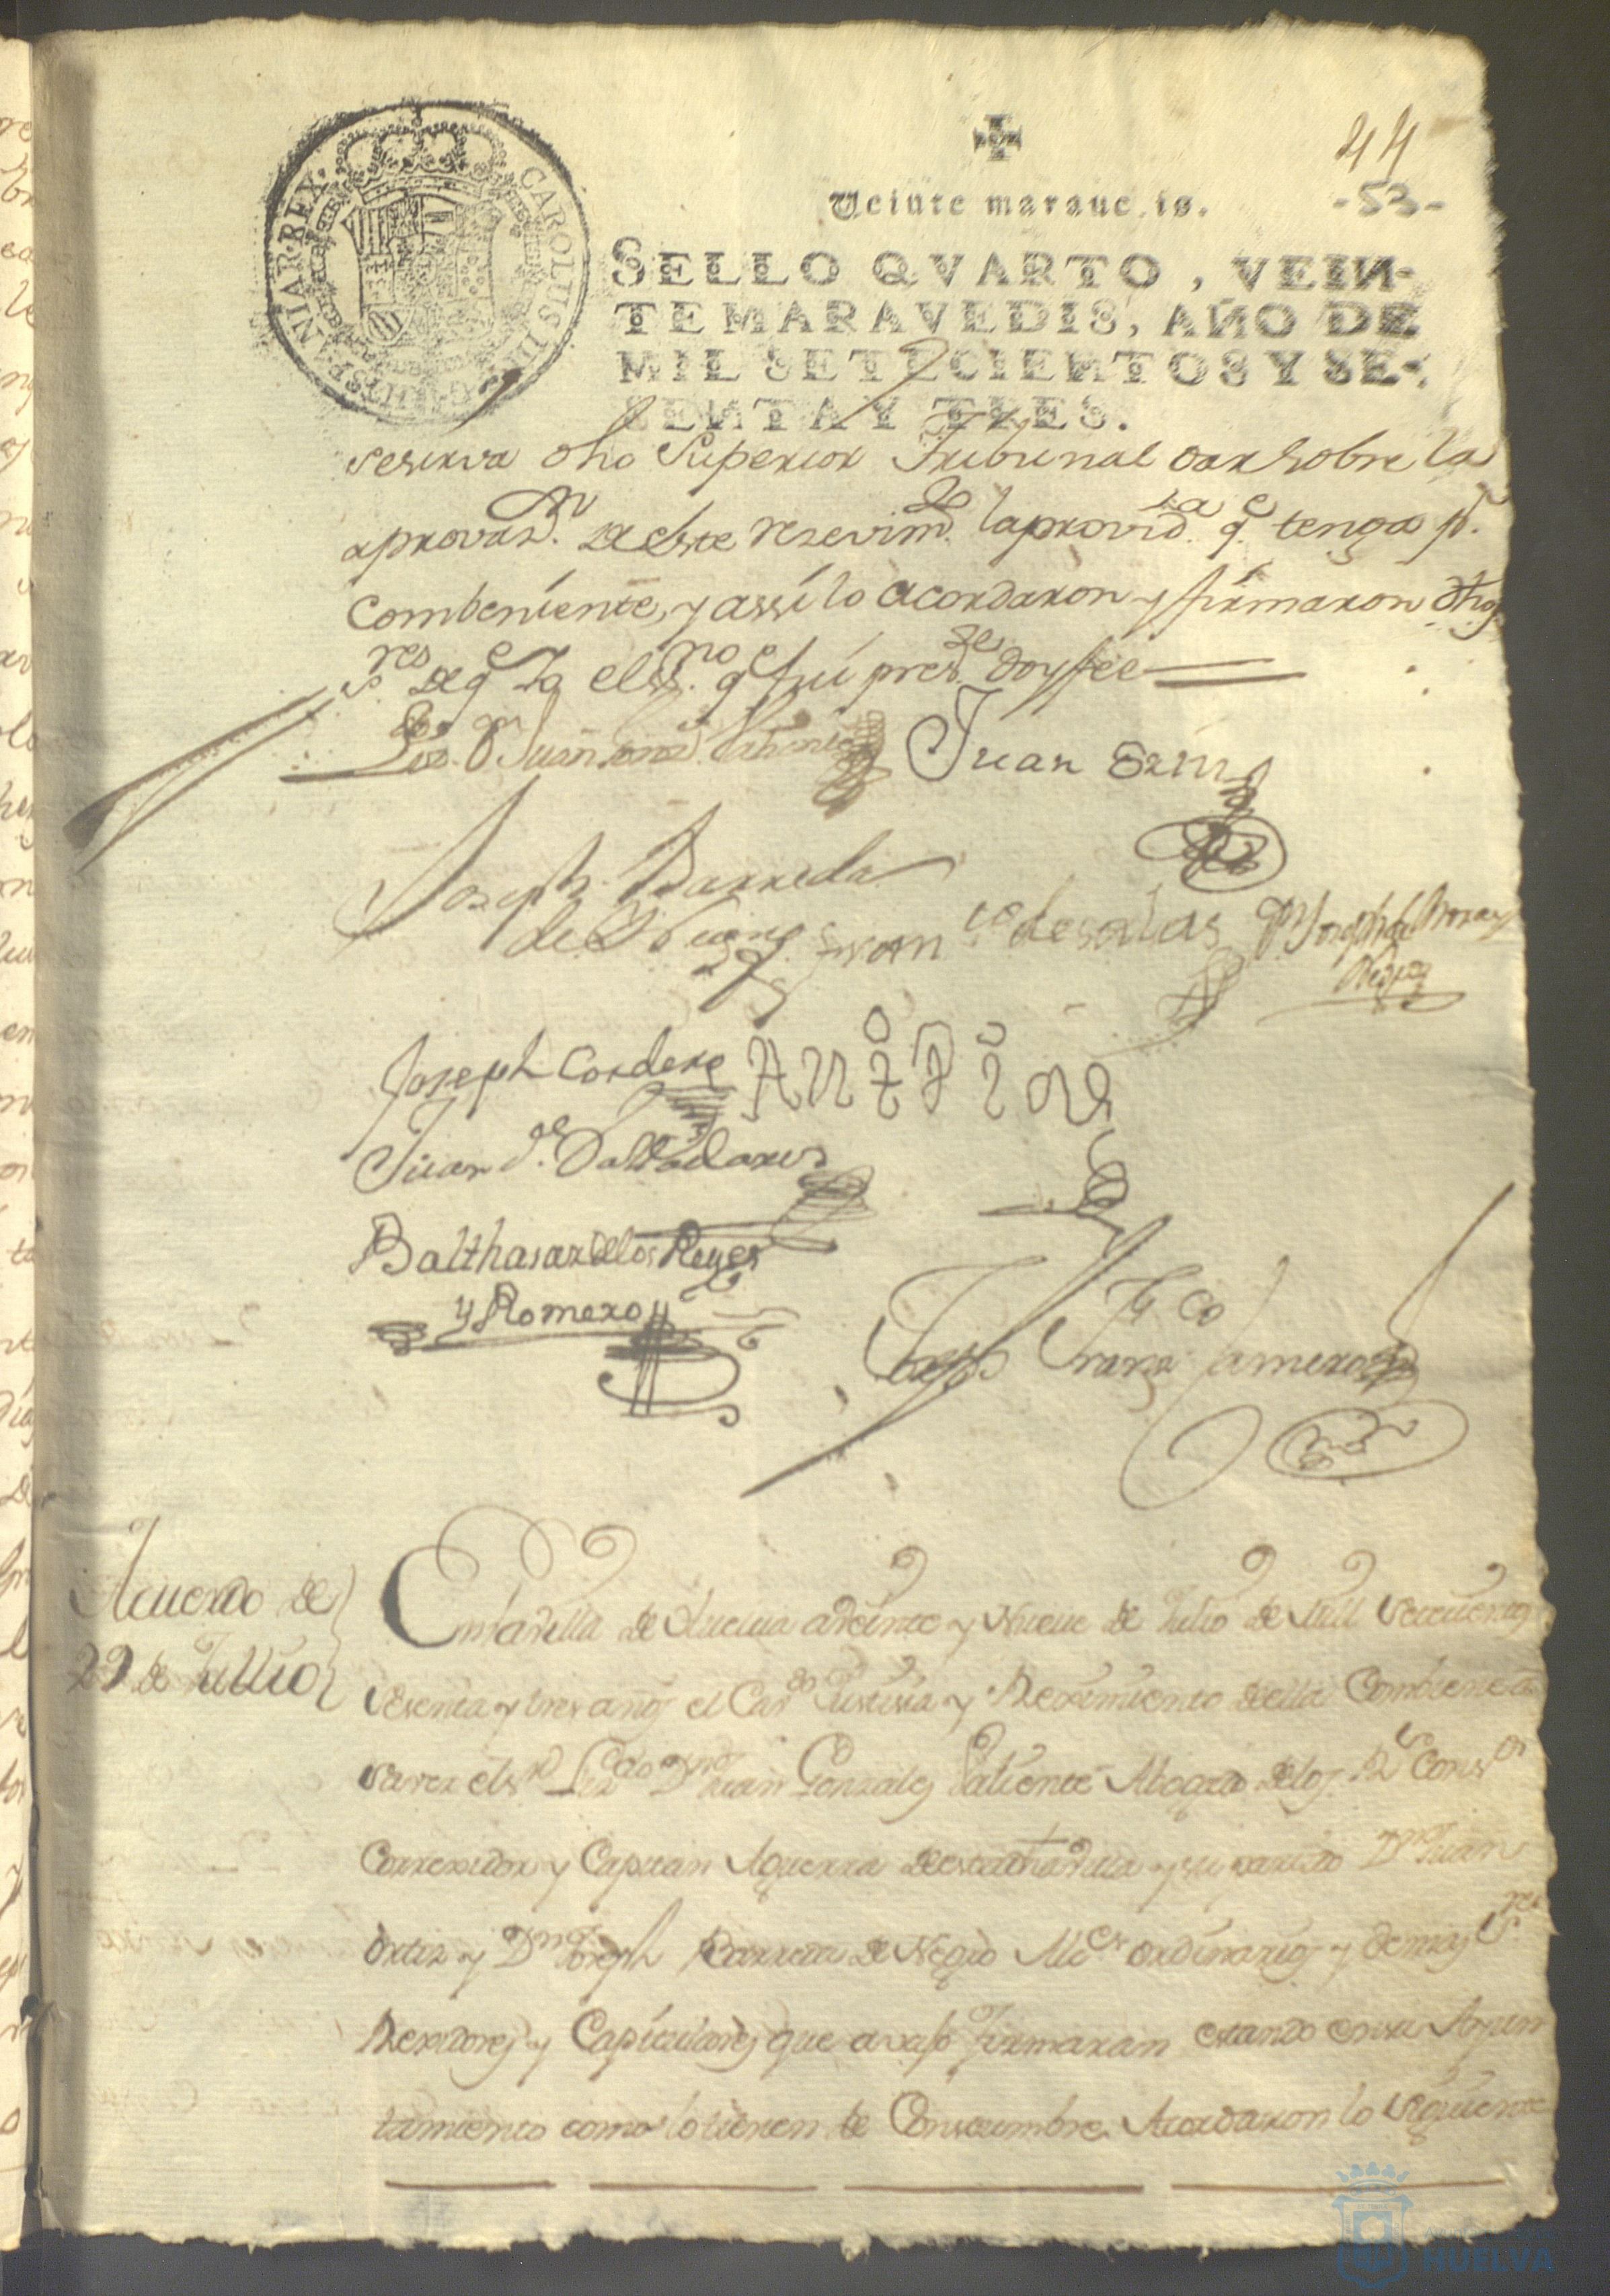 44
-53-
CAROLUS III D G HISPANIAR. REX.
Veinte maravedis.
SELLO QVARTO, VEIN-
TE MARAVEDIS, AÑO DE
MIL SETECIENTOS Y SE-
SENTA Y TRES.
reserva dho Superior Tribunal dar sobre la
aprovazn. de este rezevimto. la providza. qe. tenga pr.
combeniente, y assi lo acordaron y firmaron dhos
sres de qe Yo el ssno. qe fui presте doy fee
Lizdo. Dn Juan Gonz Juan Ortiz
Joseph Barreda
de Franco de salas Dn Joseph de
Joseph Cordero Antonio
Juan de Valladares
Balthasar de los Reyes
y Romero
Joseph Franco Camero
Acuerdo de
29 de Jullio
En la Villa de Huelva a veinte y Nueve de Julio de Mill Setecientos
sesenta y tres años el Cavdo Justisia y Reximiento de ella Combiene a
saver el sr Lizdo Dn Juan Gonzales Valiente Abogado de los Rs Consos
Correxidor y Capitan Aguerra de esta dha villa y su partido Dn Juan
Ortiz y Dn Joseph Barreda de Alces ordinarios y demas Sres
Rexidores y Capitulares que avajo firmaran estando en su Ayun
tamiento como lo tienen de Constumbre Acordaron lo siguiente
HUELVA